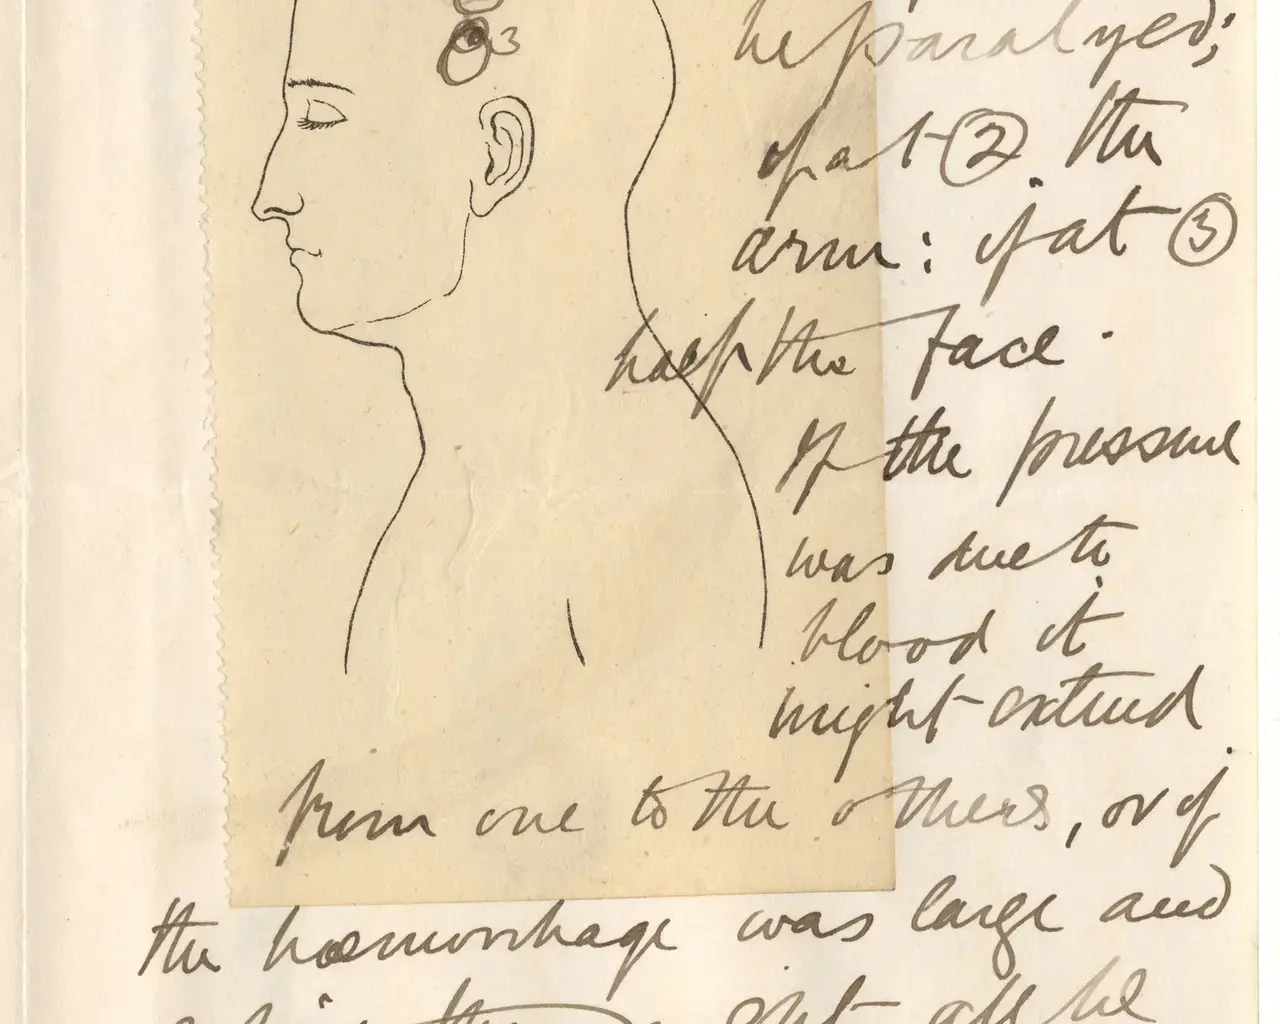 3
be paralyzed;
if at ② the
arm: if at ③
half the face.
If the pressure
was due to
blood it
might extend
from one to the others, or if
the haemorrhage was large and
might all be